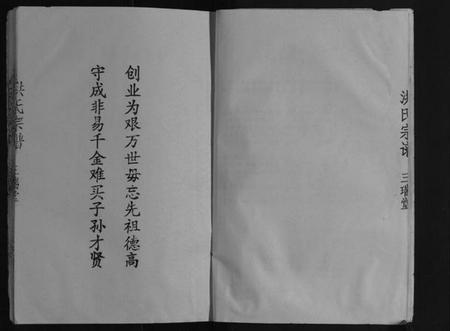 洪氏宗谱 三瑞堂
创业为艰万世毋忘先祖德高
守成非易千金难买子孙才贤
洪氏宗谱 三瑞堂